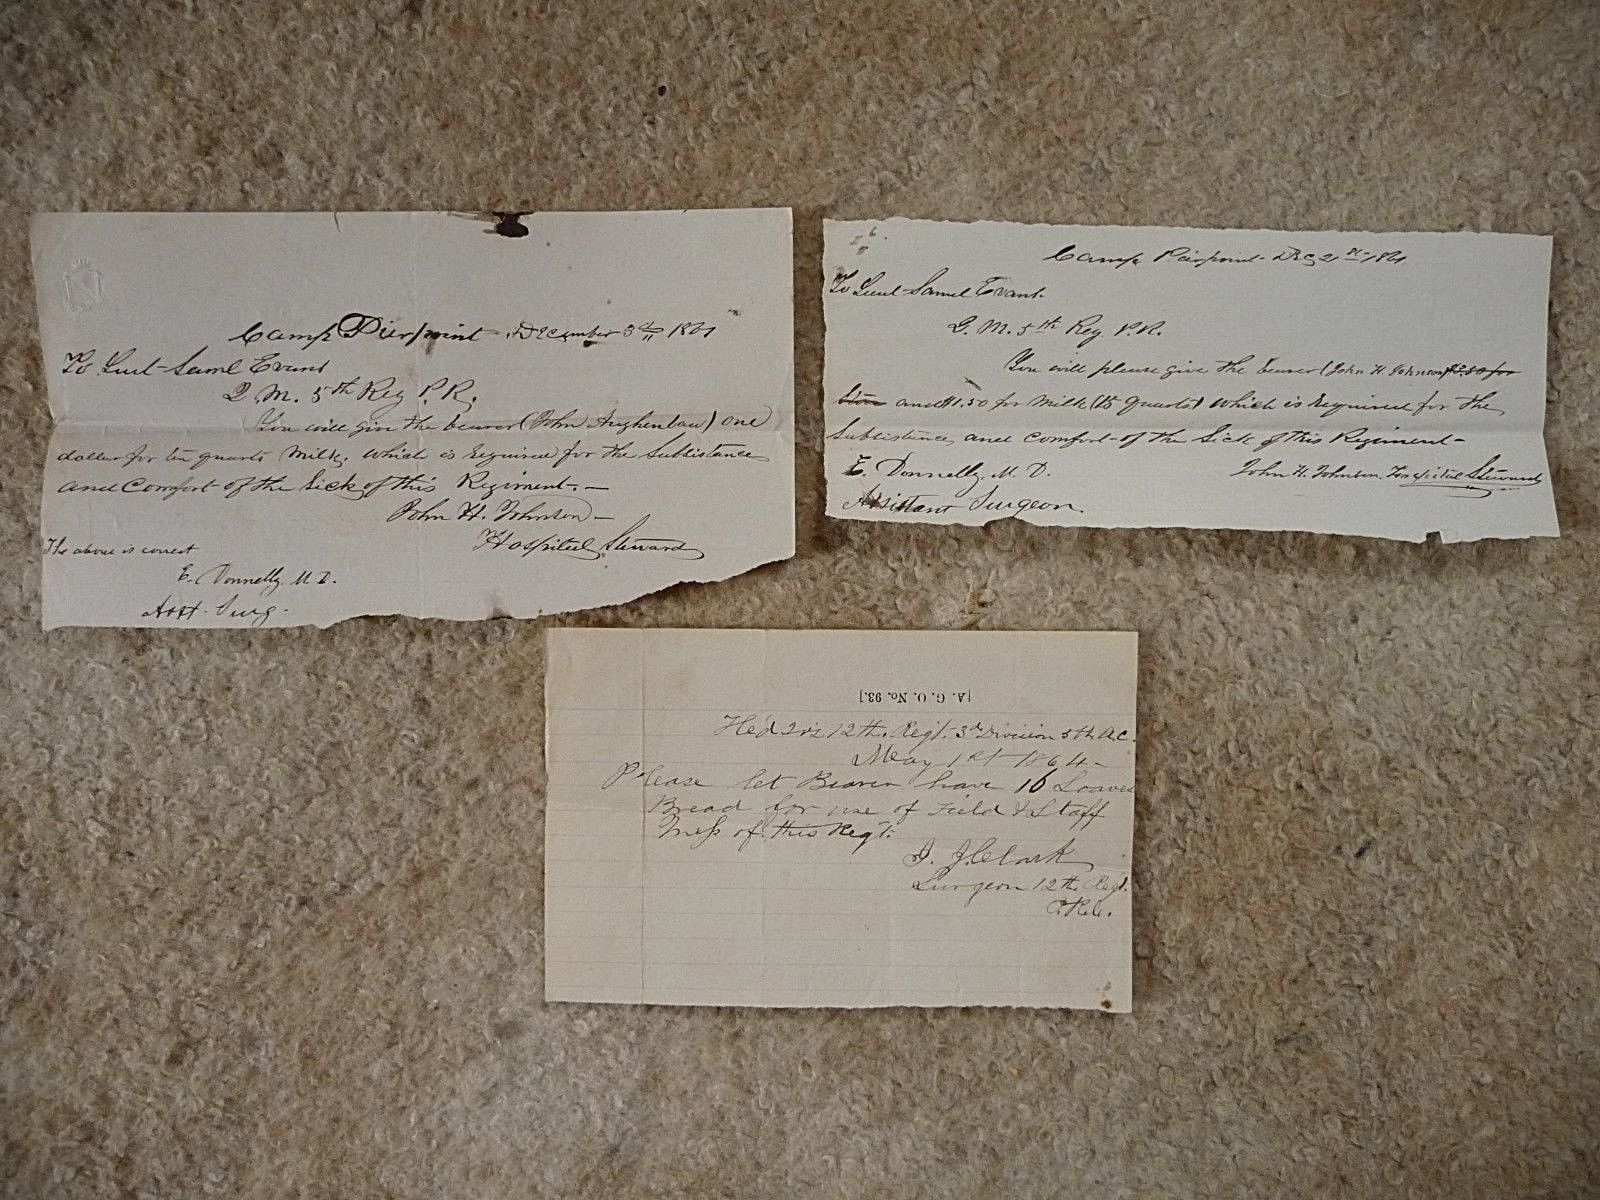 Camp Pierpoint December 3rd 1861
To Lieut Saml Evans
Q. M. 5th Reg P. R.
You will give the bearer (John Aughenbau) one
dollar for ten quarts Milk, which is required for the Subsistance
and Comfort of the Sick of this Regiment.
John H. Johnson
Hospital Steward
The above is correct
E. Donnelly M. D.
Asst. Surg.
Camp Pierpoint Dec 21st 1861
To Lieut Samuel Evans.
Q. M. 5th Reg P. R.
You will please give the bearer (John H. Johnson) $2.50 for
and $1.50 for Milk (15 quarts) which is required for the
Subsistence and Comfort of the Sick of this Regiment
E. Donnelly, M. D.
John H. Johnson Hospital Steward
Assistant Surgeon.
[A. G. O. No. 93.]
Hed Qrs 12th. Regt. 3rd Division 5th A.C.
May 1st 1864
Please let Bearer have 16 Loaves
Bread for use of Field & Staff
Mess of this Regt.
J. Clark
Surgeon 12th Regt.